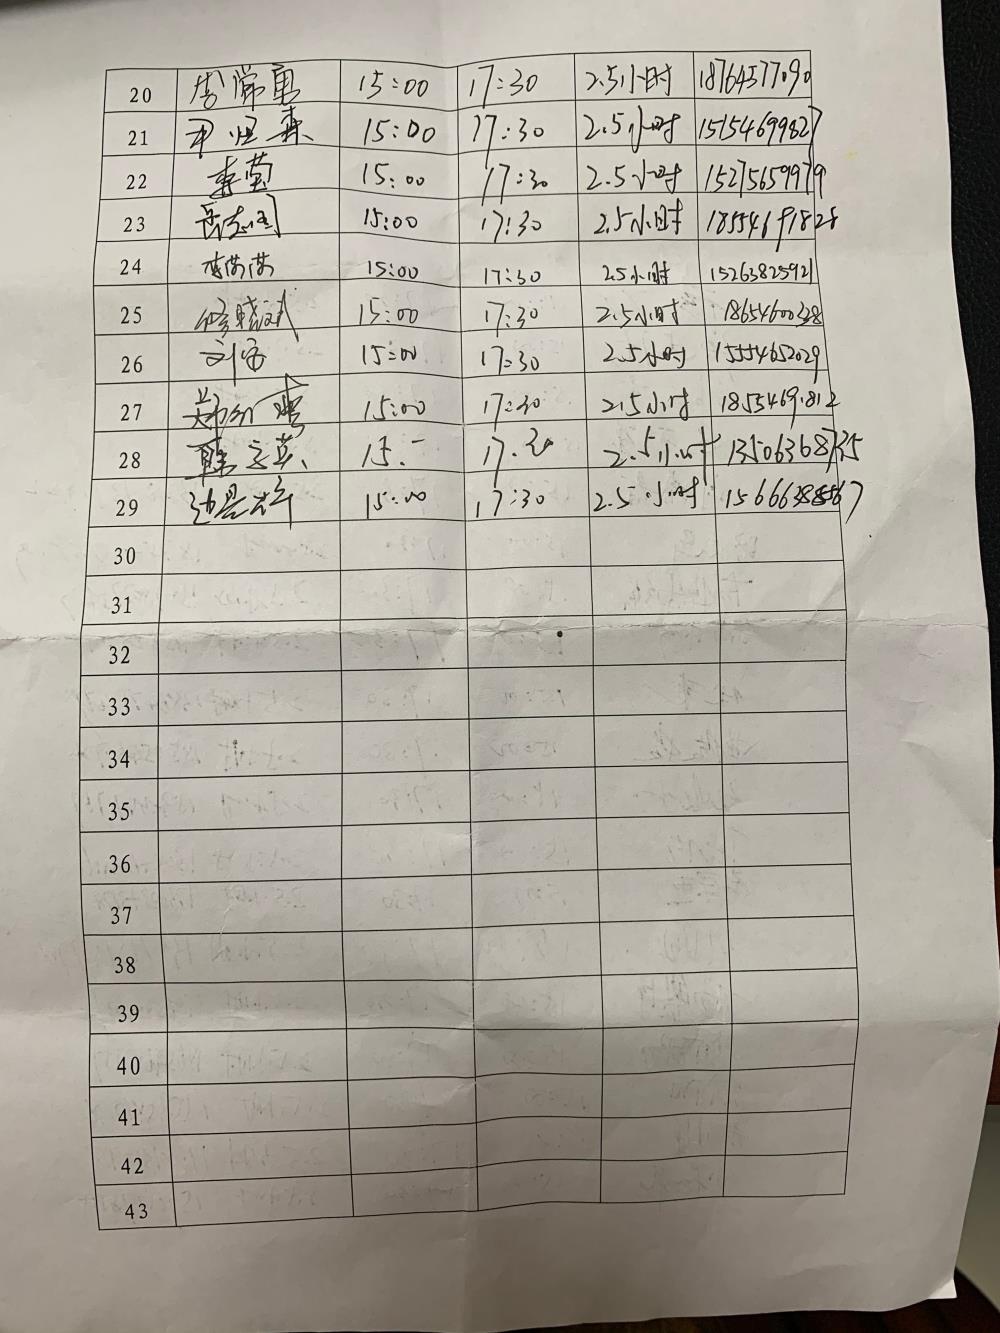 20 常勇 15:00 17:30 2.5小时 18764577090
21 尹恒森 15:00 17:30 2.5小时 15154699827
22 李莹 15:00 17:30 2.5小时 15275659979
23 岳志刚 15:00 17:30 2.5小时 18554691828
24 李蒙蒙 15:00 17:30 2.5小时 15263825921
25 修晓斌 15:00 17:30 2.5小时 18654600338
26 刘 15:00 17:30 2.5小时 15554652029
27 15:00 17:30 2.5小时 18554691812
28 15:- 17:30 2.5小时 13506368735
29 边 15:00 17:30 2.5小时
30
31
32
33
34
35
36
37
38
39
40
41
42
43